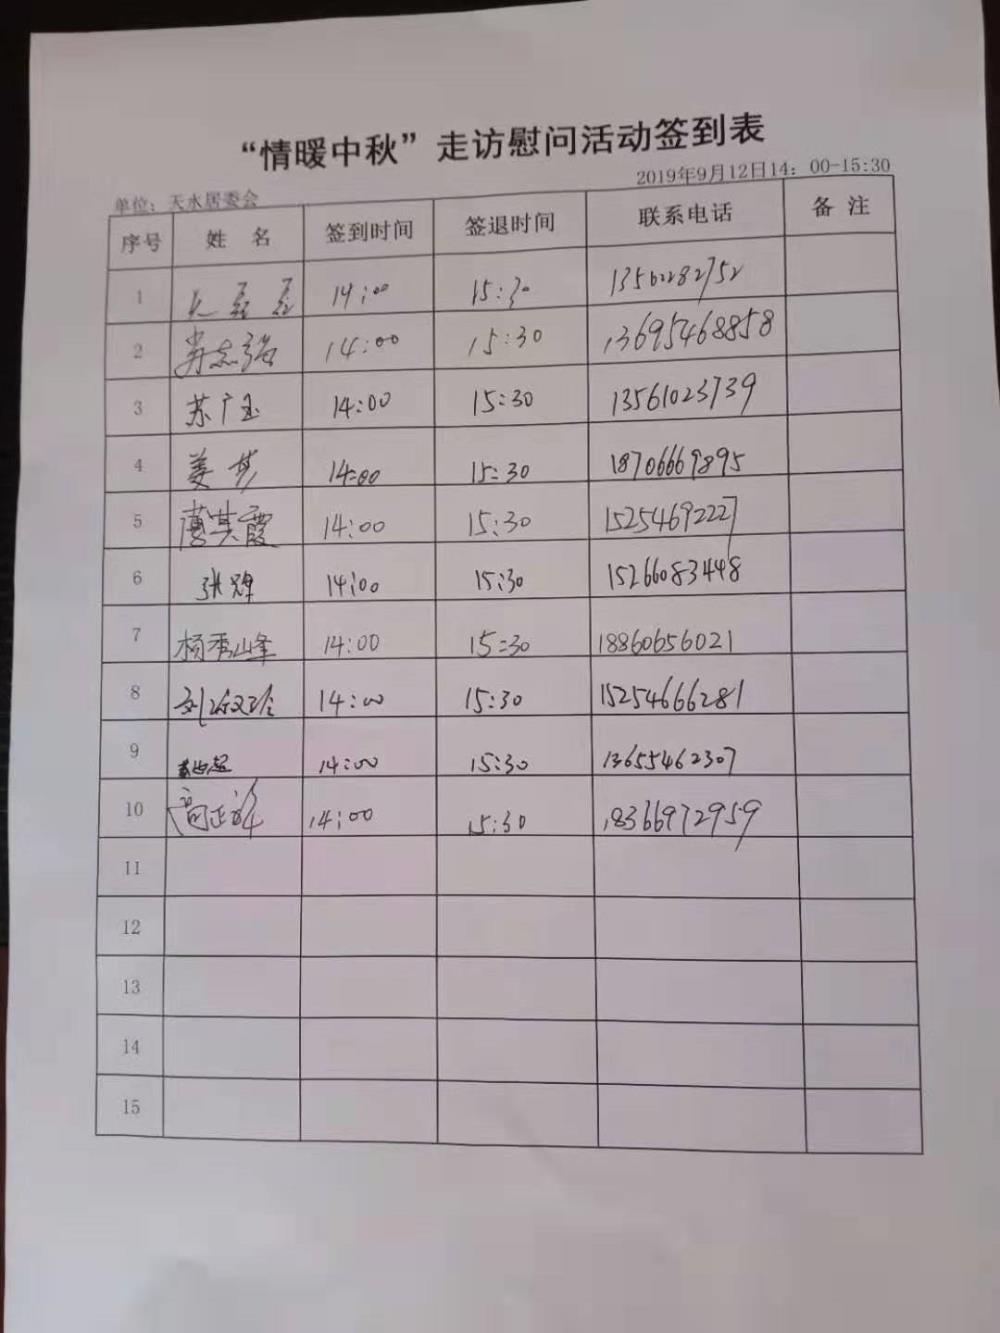 “情暖中秋”走访慰问活动签到表
2019年9月12日14：00-15:30
单位：天水居委会
序号 姓 名 签到时间 签退时间 联系电话 备 注
1 14:00 15:30 13562282752
2 14:00 15:30 13695468858
3 苏广玉 14:00 15:30 13561023739
4 姜梦 14:00 15:30 18706669895
5 14:00 15:30 15254692227
6 张辉 14:00 15:30 15266083448
7 杨秀峰 14:00 15:30 18860656021
8 14:00 15:30 15254666281
9 14:00 15:30 13655462307
10 14:00 15:30 18366972959
11
12
13
14
15